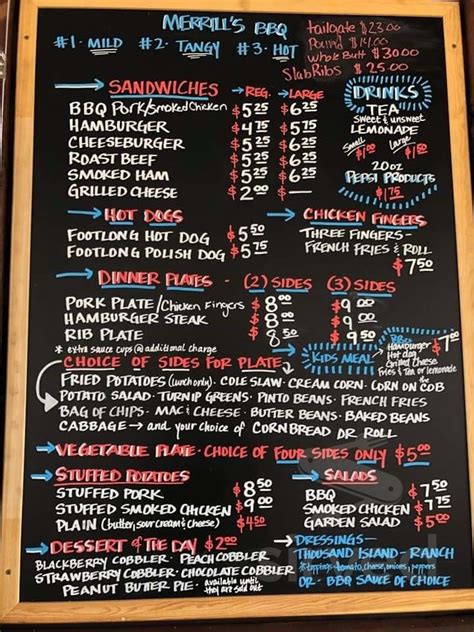 MERRILL'S BBQ
#1· MILD #2· TANGY #3· HOT
tailgate $23.00
Pound $14.00
Whole Butt $30.00
Slab Ribs $25.00
SANDWICHES REG. LARGE
BBQ Pork/Smoked Chicken $5 25 $6 25
HAMBURGER $4 75 $5 75
CHEESEBURGER $5 25 $6 25
ROAST BEEF $5 25 $6 25
SMOKED HAM $5 25 $6 25
GRILLED CHEESE $2 00 $—
DRINKS
TEA
Sweet & unsweet
LEMONADE
Small Large
20oz
PEPSI PRODUCTS
$1 75
HOT DOGS
FOOTLONG HOT DOG $5 50
FOOTLONG POLISH DOG $5 75
CHICKEN FINGERS
THREE FINGERS -
FRENCH FRIES & ROLL
$7 50
DINNER PLATES - (2) SIDES (3) SIDES
PORK PLATE/Chicken Fingers $8 00 $9 00
HAMBURGER STEAK $8 00 $9 00
RIB PLATE $8 50 $9 50
* extra sauce cups @ additional charge
KIDS MEAL
BBQ
Hamburger
Hot dog
Grilled Cheese
Fries & Tea or lemonade
$7 00
CHOICE OF SIDES FOR PLATE
FRIED POTATOES (lunch only) · COLE SLAW · CREAM CORN · CORN ON the COB
POTATO SALAD · TURNIP GREENS · PINTO BEANS · FRENCH FRIES
BAG OF CHIPS · MAC & CHEESE · BUTTER BEANS · BAKED BEANS
CABBAGE → and your choice of CORNBREAD OR ROLL
VEGETABLE PLATE · CHOICE OF FOUR SIDES ONLY $5 00
STUFFED POTATOES
STUFFED PORK $8 50
STUFFED SMOKED CHICKEN $9 00
PLAIN (butter, sour cream & cheese) $4 50
SALADS
BBQ $7 50
SMOKED CHICKEN $7 50
GARDEN SALAD $5 00
DESSERT of THE DAY $2 00
BLACKBERRY COBBLER · PEACH COBBLER
STRAWBERRY COBBLER · CHOCOLATE COBBLER
PEANUT BUTTER PIE · available until they are sold out
DRESSINGS -
THOUSAND ISLAND - RANCH
*toppings - tomato, cheese, onions, peppers
OR - BBQ SAUCE OF CHOICE